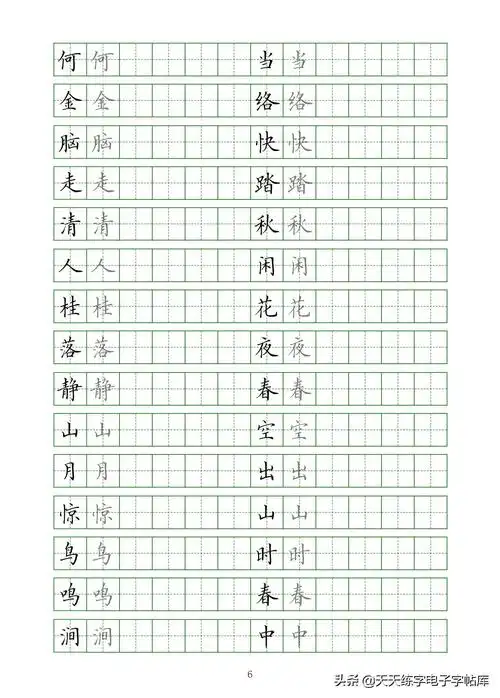 何何 当当
金金 络络
脑脑 快快
走走 踏踏
清清 秋秋
人人 闲闲
桂桂 花花
落落 夜夜
静静 春春
山山 空空
月月 出出
惊惊 山山
鸟鸟 时时
鸣鸣 春春
涧涧 中中
6
头条@天天练字电子字帖库